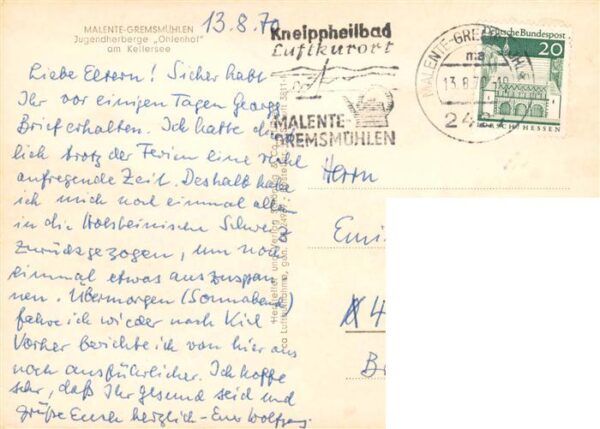 MALENTE-GREMSMÜHLEN
Jugendherberge „Ohlenhof"
am Kellersee
13.8.70
Liebe Eltern! Sicher habt
Ihr vor einigen Tagen Georgs
Brief erhalten. Ich hatte
lich trotz der Ferien eine reihe
aufregende Zeit. Deshalb habe
ich mich noch einmal allein
in die Holsteinische Schweiz
zurückgezogen, um noch
einmal etwas auszuspan
nen. Übermorgen (Sonnabend)
fahre ich wieder nach Kiel
Vorher berichte ich von hier aus
noch ausführlicher. Ich hoffe
sehr, daß Ihr gesund seid und
grüße Euch herzlich - Euer Wolfgang
Kneippheilbad
Luftkurort
MALENTE-
GREMSMÜHLEN
MALENTE-GREMSMÜHLEN
13.8.70-18
242
Deutsche Bundespost
20
LORSCH/HESSEN
Herrn
Emi
4
B